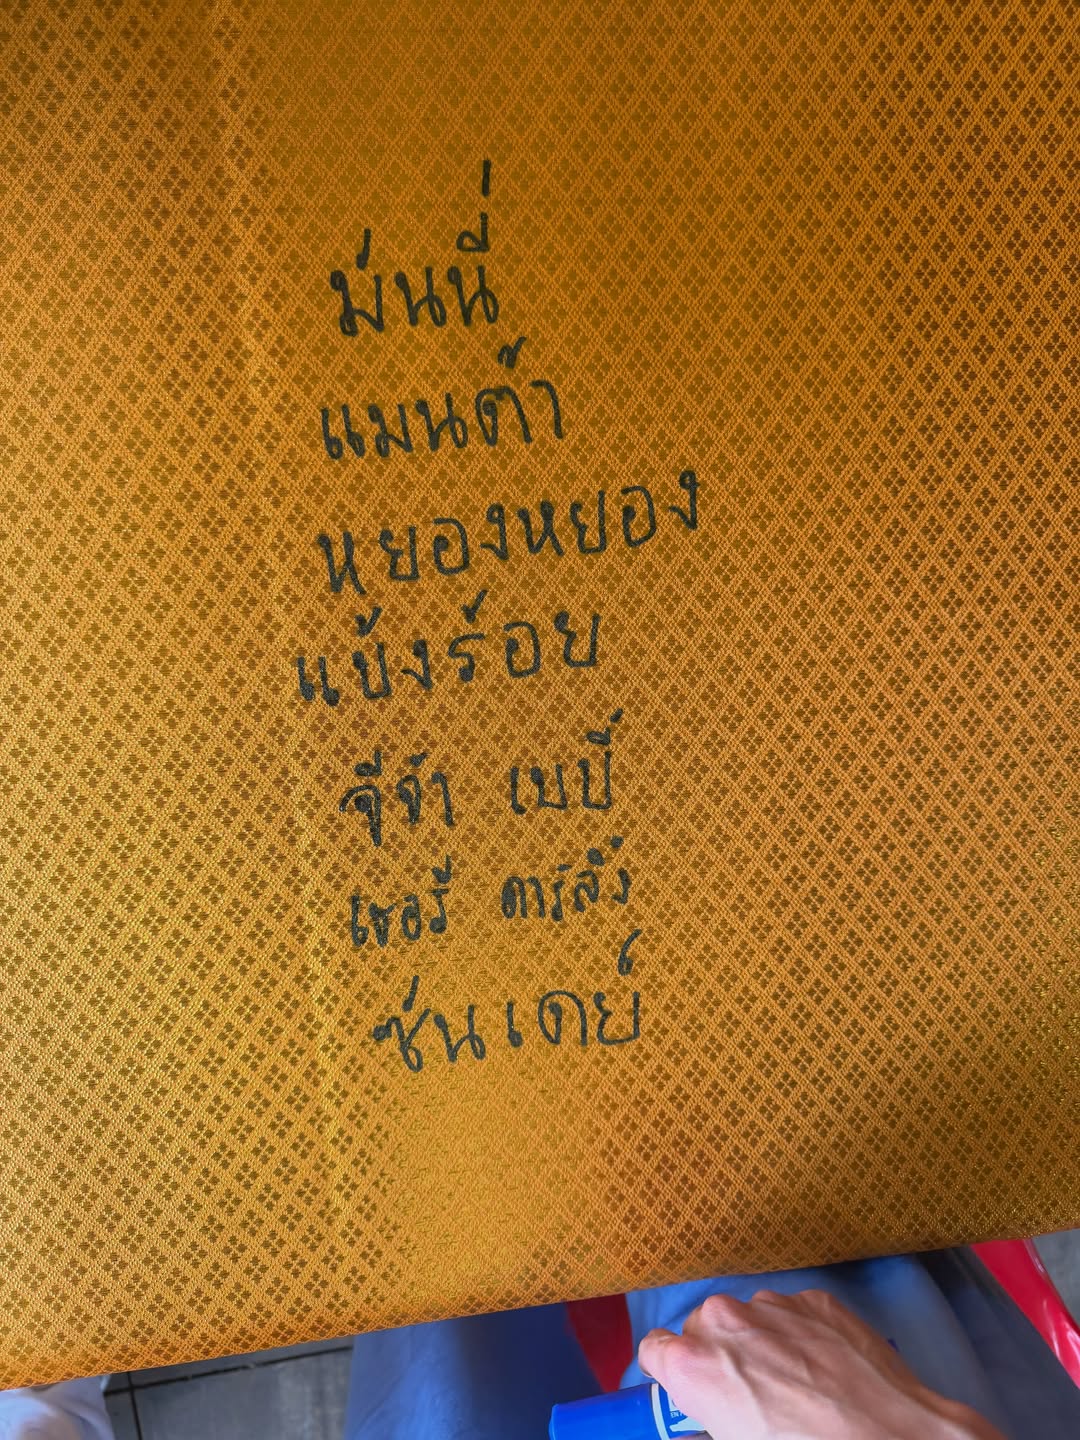 มันนี่
แมนต้า
หยองหยอง
แป้งร้อย
จีจ้า เบบี้
เชอรี่ ดาร์ลิ่ง
ซันเดย์